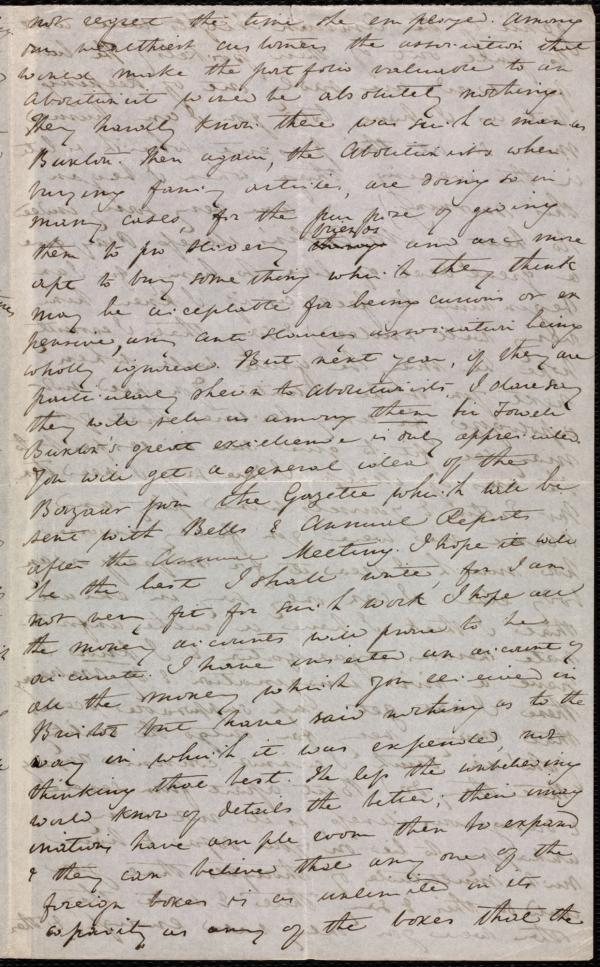 not regret the time she employed. Among
our wealthiest customers the association that
would make the portfolio valuable to an
Abolitionist would be absolutely nothing.
They hardly know there was such a man as
Buxton. Then again, the Abolitionists when
buying fancy articles, are doing so in
many cases, for the purpose of giving
them to pro slavery friends and are more
apt to buy something which they think
may be acceptable for being curious or ex
pensive, any anti slavery association being
wholly ignored. But next year, if they are
particularly shewn to Abolitionists, I daresay
they will sell as among them Sir Fowell
Buxton's great excellence is duly appreciated.
You will get a general idea of the
Bazaar from the Gazette which will be
sent with Bells & Annual Reports
after the Annual Meeting. I hope it will
be the last I shall write, for I am
not very fit for such work I hope all
the money accounts will prove to be
accurate. I have inserted an account of
all the money which you received in
Bristol but have said nothing as to the
way in which it was expended, not
thinking that best. The less the unbelieving
world know of details the better; their imag
inations have ample room then to expand
& they can believe that any one of the
foreign boxes is as unlimited in its
capacity as any of the boxes that the